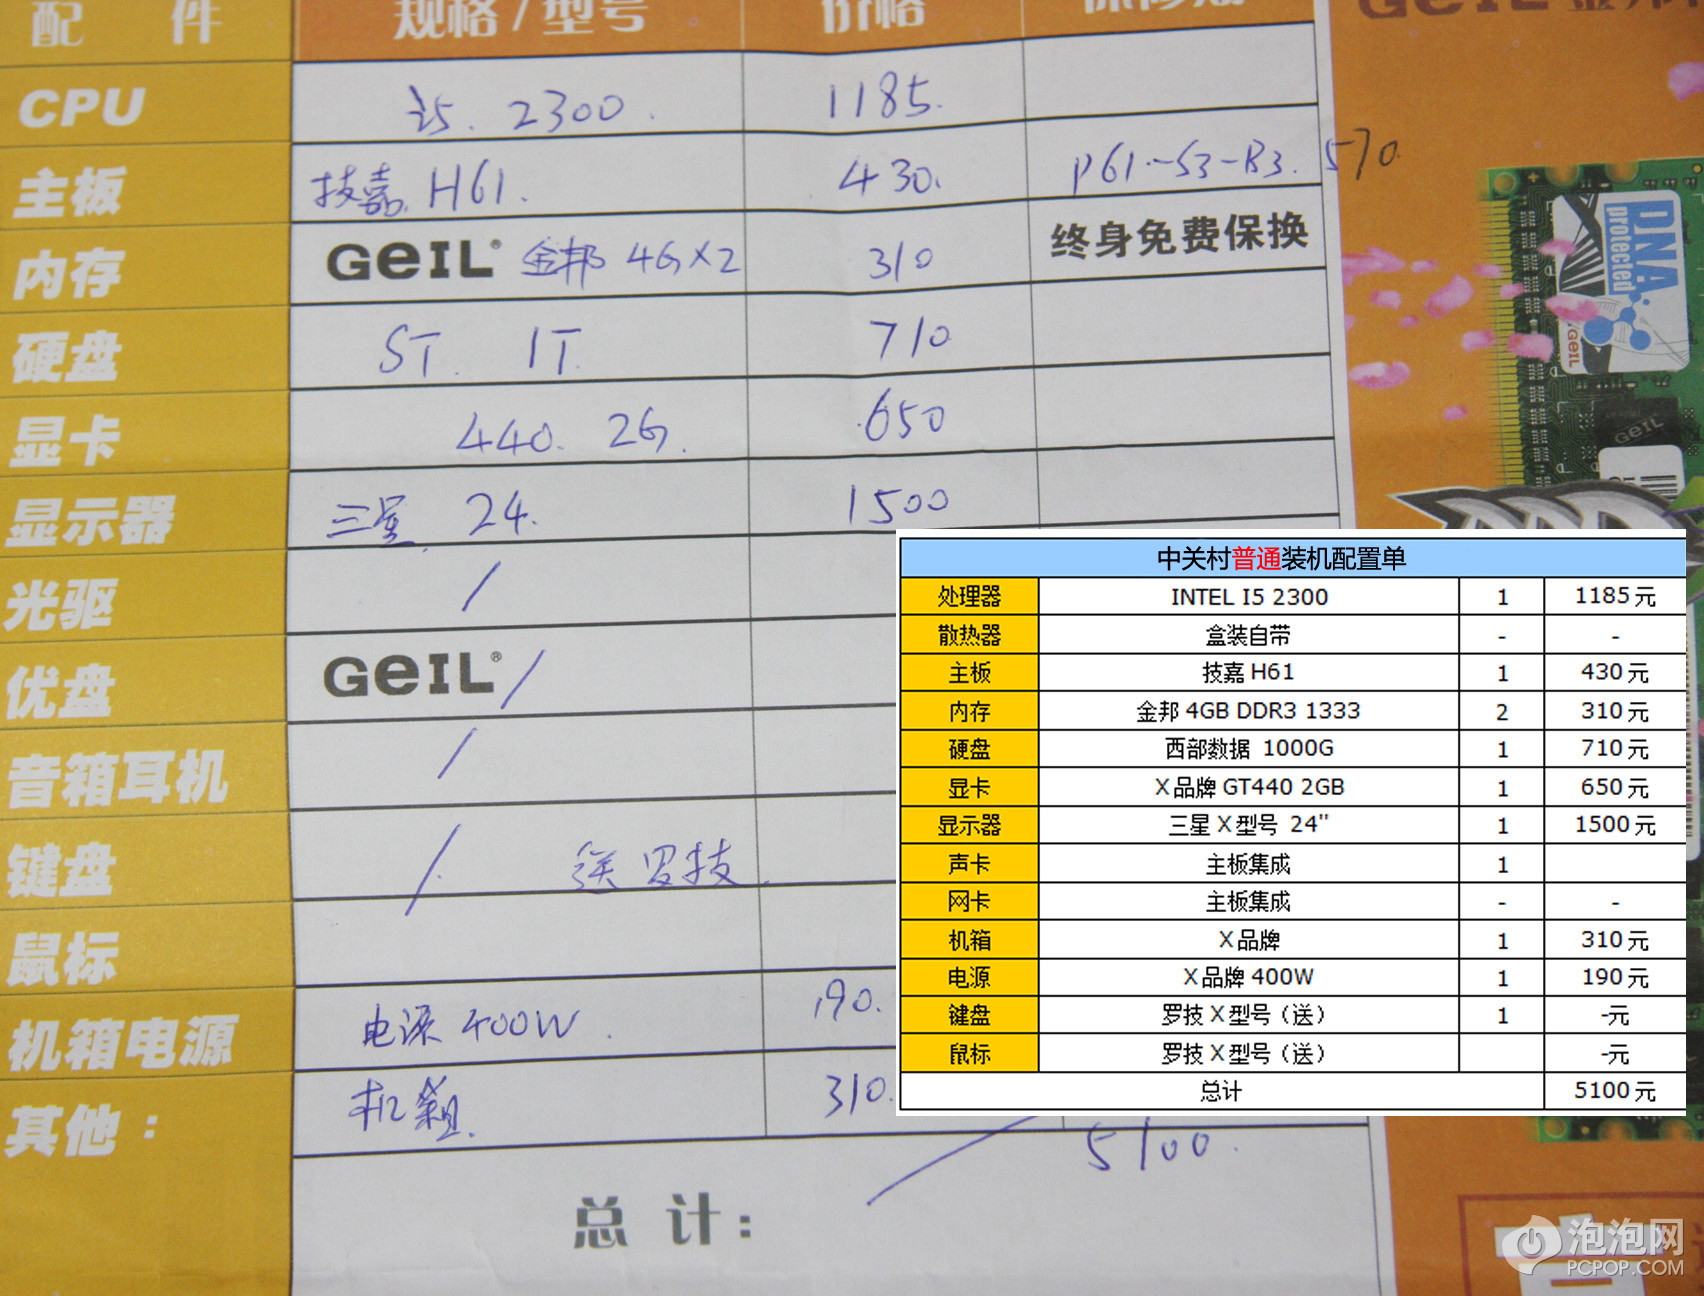 配 件 规格/型号 价格 保修期 GeIL 金邦
CPU i5. 2300. 1185.
主板 技嘉 H61. 430. P61-S3-B3. 570.
内存 GeIL® 金邦 4G×2 310 终身免费保换
硬盘 ST. 1T. 710
显卡 440. 2G. 650
显示器 三星 24. 1500
光驱 /
优盘 GeIL® /
音箱耳机 /
键盘 / 送罗技.
鼠标
机箱电源 电源 400W. 190.
其他: 机箱. 310.
总 计: 5100.
DNA
protected
GeIL
GeIL
中关村普通装机配置单
处理器 INTEL I5 2300 1 1185元
散热器 盒装自带 - -
主板 技嘉 H61 1 430元
内存 金邦 4GB DDR3 1333 2 310元
硬盘 西部数据 1000G 1 710元
显卡 X品牌 GT440 2GB 1 650元
显示器 三星X型号 24" 1 1500元
声卡 主板集成 1
网卡 主板集成 - -
机箱 X品牌 1 310元
电源 X品牌 400W 1 190元
键盘 罗技X型号（送） 1 -元
鼠标 罗技X型号（送） -元
总计 5100元
泡泡网
PCPOP.COM